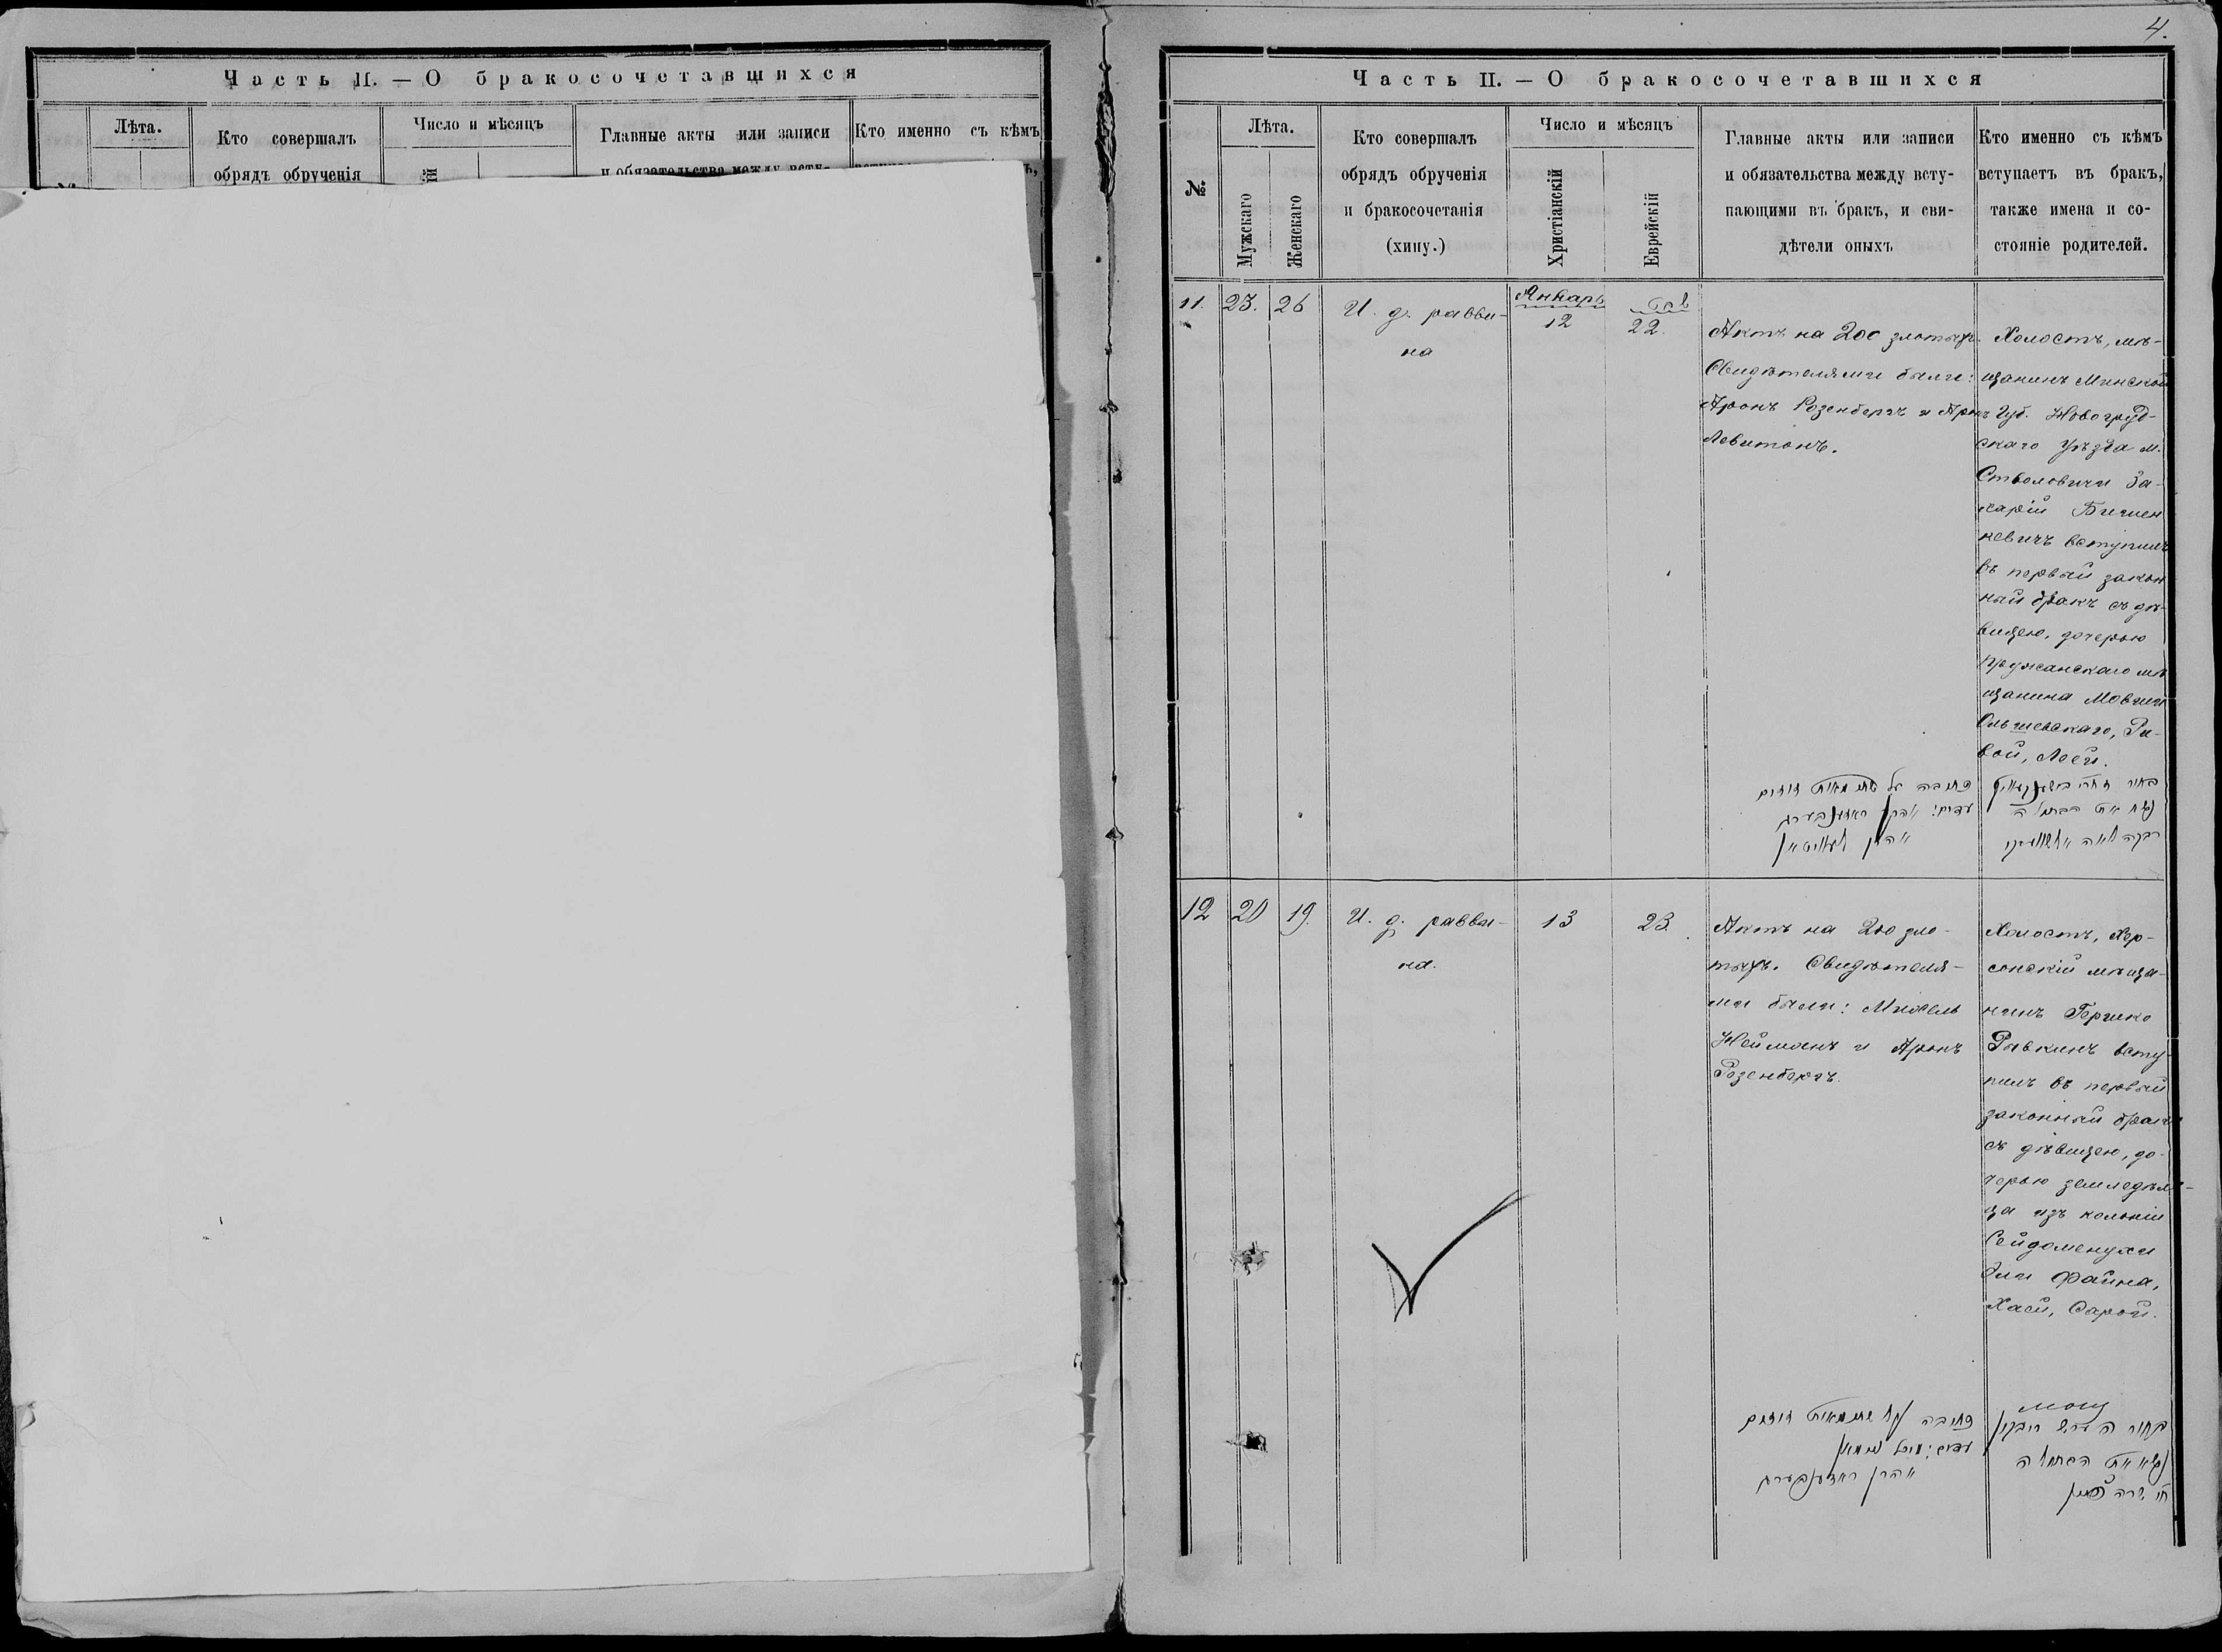 Часть II. — О бракосочетавшихся
Лѣта.
Кто совершалъ
обрядъ обрученія
Число и мѣсяцъ
Главные акты или записи
и обязательства между всту-
Кто именно съ кѣмъ
4.
Часть II. — О бракосочетавшихся
№
Лѣта.
Мужскаго
Женскаго
Кто совершалъ
обрядъ обрученія
и бракосочетанія
(хипу.)
Число и мѣсяцъ
Христіанскій
Еврейскій
Главные акты или записи
и обязательства между всту-
пающими въ бракъ, и сви-
дѣтели оныхъ
Кто именно съ кѣмъ
вступаетъ въ бракъ,
также имена и со-
стояніе родителей.
11.
23.
26
И. д. равви-
на
Январь
12
22.
Актъ на 200 злотыхъ.
Свидѣтелями были:
Аронъ Розенбергъ и Аронъ
Левитанъ.
Холостъ, мѣ-
щанинъ Минской
Губ. Новогруд-
скаго Уѣзда м.
Столовичи За-
харій
кевичъ вступилъ
въ первый закон
ный бракъ съ дѣ-
вицею, дочерью
Пружанскаго мѣ
щанина Мовши
Ольшевскаго, Ри-
вой, Леей.
כתובה על מאתים זהובים
עדים: אהרן ראזענבערג
אהרן לעוויטאן
נשא את הבתולה
רבקה לאה
12
20
19.
И. д. равви-
на.
13
23.
Актъ на 200 зло-
тыхъ. Свидѣтеля-
ми были: Михель
Нейманъ и Аронъ
Розенбергъ.
Холостъ, Хер-
сонскій мѣща-
нинъ Гершко
Рывкинъ всту-
пилъ въ первый
законный бракъ
съ дѣвицею, до-
черью земледѣль-
ца изъ колоніи
Сейдеменухи
Эли Файна,
Хаей, Сарой.
כתובה על מאתים זהובים
עדים: מיכל נוימאן
אהרן ראזענבערג
בחור הירש ריבקין
נשא את הבתולה
חי' שרה פיין